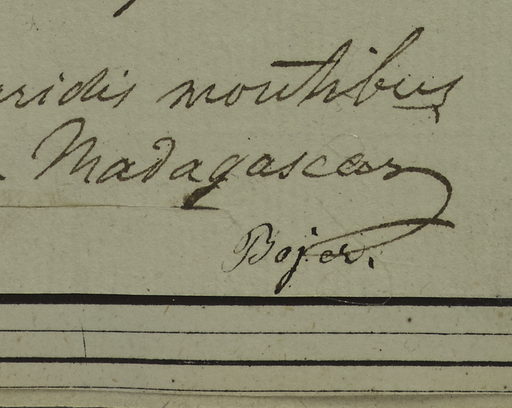 aridis montibus
Madagascar
Bojer.